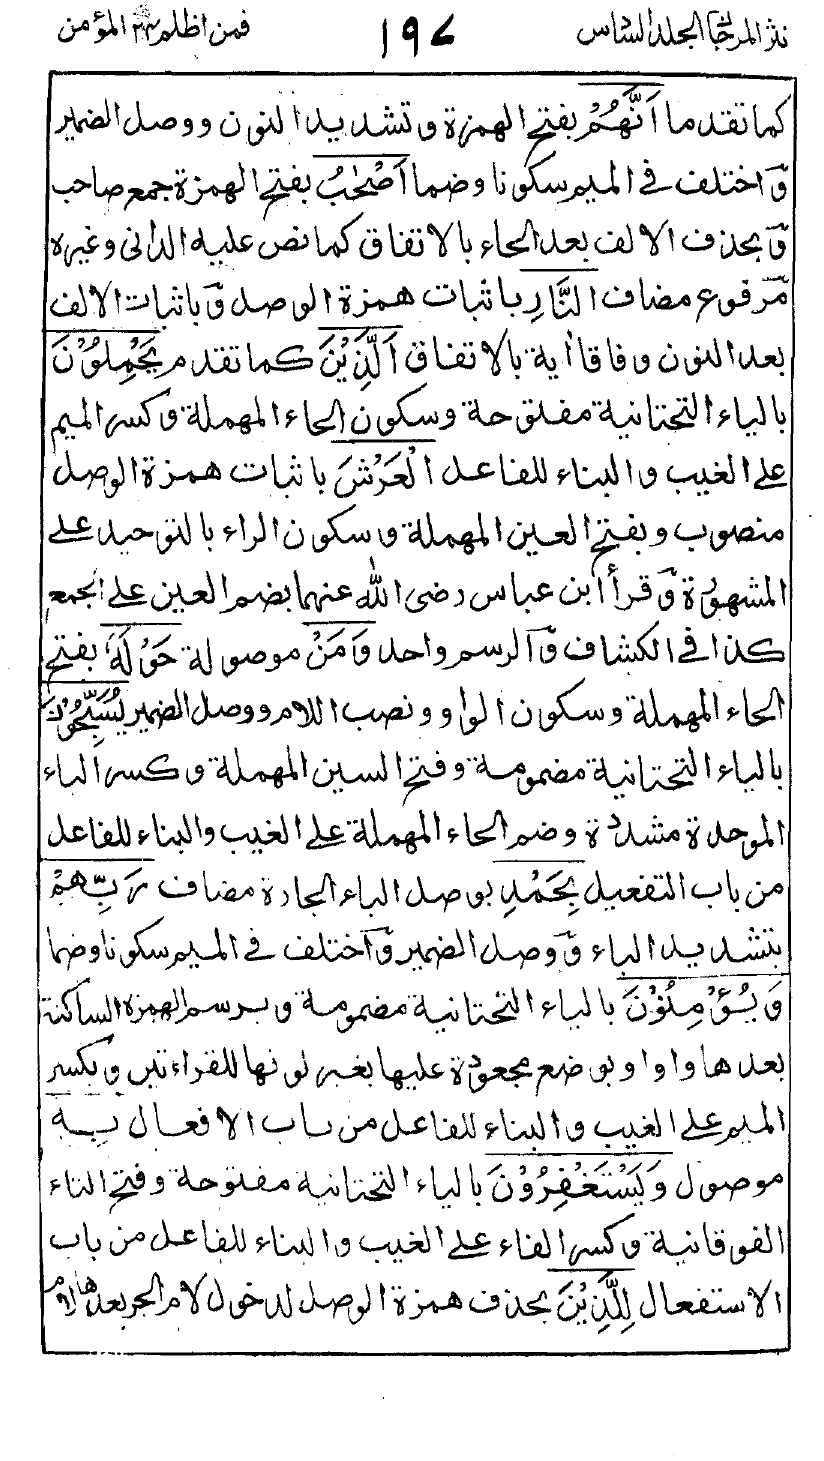 نثر المرجان الجلد السادس ١٩٧ فمن اظلم ٢٤ المؤمن
كما تقدم ما اَنَّهُمْ بفتح الهمزة وتشديد النون ووصل الضمير
وٓاختلف في الميم سكونا وضما اَصْحٰبُ بفتح الهمزة جمع صاحب
وٓبحذف الالف بعد الحاء بالاتفاق كما نص عليه الداني وغيره
مرفوع مضاف النَّارِ باثبات همزة الوصل وٓباثبات الالف
بعد النون وفاقا اٰية بالاتفاق اَلَّذِيْنَ كما تقدم يَحْمِلُوْنَ
بالياء التحتانية مفتوحة وسكون الحاء المهملة وٓكسر الميم
على الغيب والبناء للفاعل الْعَرْشَ باثبات همزة الوصل
منصوب وبفتح العين المهملة وسكون الراء بالتوحيد على
المشهورة وٓقرأ ابن عباس رضى الله عنهما بضم العين على الجمع
كذا في الكشاف وٓالرسم واحد وَمَنْ موصولة حَوْلَهٗ بفتح
الحاء المهملة وسكون الواو ونصب اللام ووصل الضمير يُسَبِّحُوْنَ
بالياء التحتانية مضمومة وفتح السين المهملة وكسر الباء
الموحدة مشددة وضم الحاء المهملة على الغيب والبناء للفاعل
من باب التفعيل بِحَمْدِ بوصل الباء الجارة مضاف رَبِّهِمْ
بتشديد الباء وٓوصل الضمير وٓاختلف في الميم سكونا وضما
وَيُؤْمِنُوْنَ بالياء التحتانية مضمومة وبرسم الهمزة الساكنة
بعدها واوا وبوضع مجعودة عليها بغير لونها للقراءتين وٓبكسر
الميم على الغيب والبناء للفاعل من باب الافعال بِهٖ
موصول وَيَسْتَغْفِرُوْنَ بالياء التحتانية مفتوحة وفتح التاء
الفوقانية وٓكسر الفاء على الغيب والبناء للفاعل من باب
الاستفعال لِلَّذِيْنَ بحذف همزة الوصل لدخول لام الجر بعدها لام